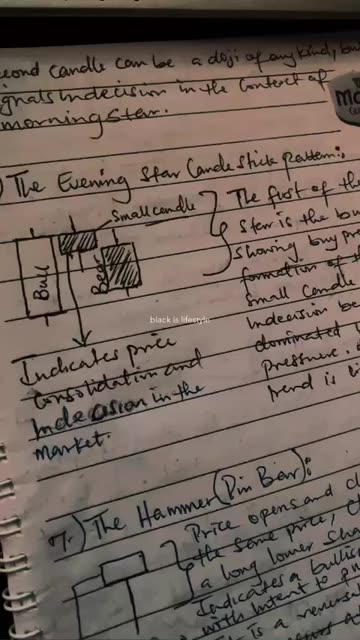 second candle can be a doji of any kind, but
signals Indecision in the Context of
morning Star.
The Evening Star Candlestick pattern:
small candle
Bull
Bear
The first of the
Star is the bu
showing buy pre
formation of t
small Candle
Indecision be
dominated
pressure.
trend is li
black is lifestyle
Indicates price
Consolidation and
Indecision in the
market.
7.) The Hammer (Pin Bar):
Price opens and cl
the same price,
a long lower sha
Indicates a bullis
with intent to pu
is a revers